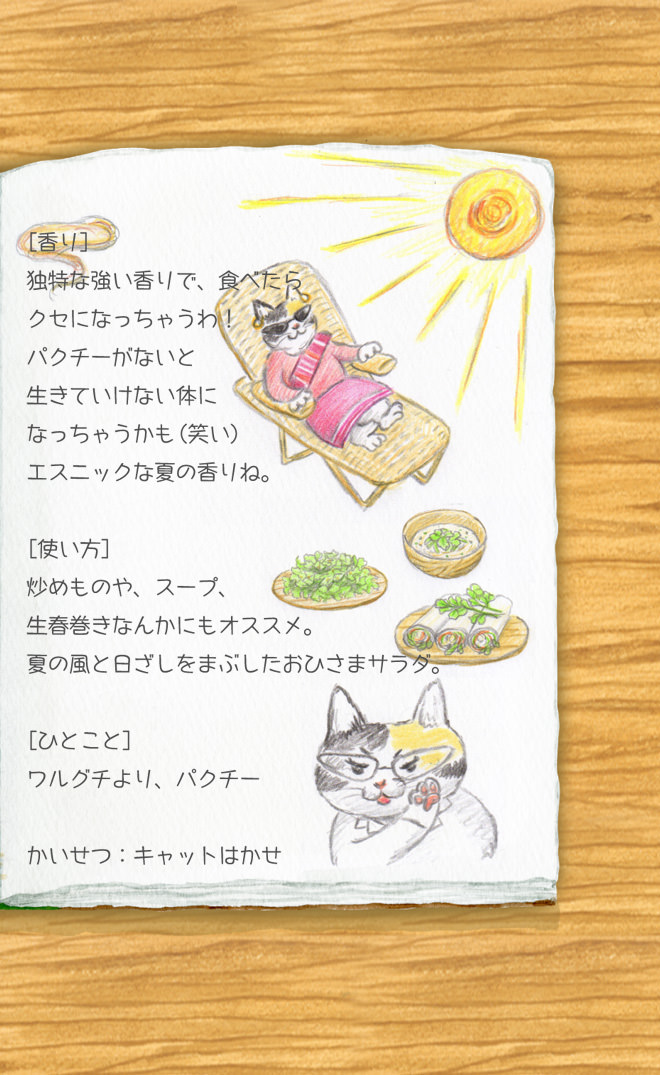 [香り]
独特な強い香りで、食べたら
クセになっちゃうわ！
パクチーがないと
生きていけない体に
なっちゃうかも(笑い)
エスニックな夏の香りね。
[使い方]
炒めものや、スープ、
生春巻きなんかにもオススメ。
夏の風と日ざしをまぶしたおひさまサラダ。
[ひとこと]
ワルグチより、パクチー
かいせつ：キャットはかせ